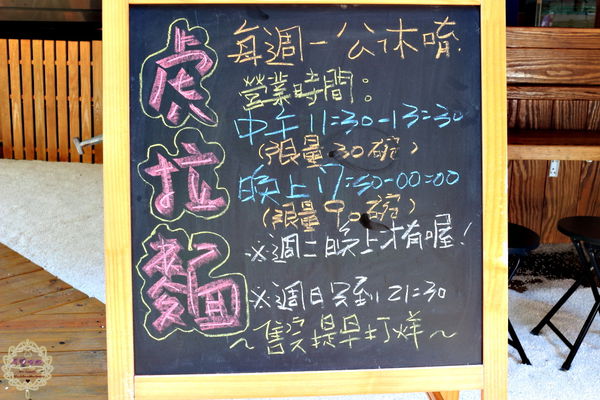 虎拉麵
每週一公休唷!
營業時間:
中午 11:30-13:30
(限量30碗)
晚上 17:30-00:00
(限量90碗)
※週二晚上才有喔!
※週日只到 21:30
~售完提早打烊~